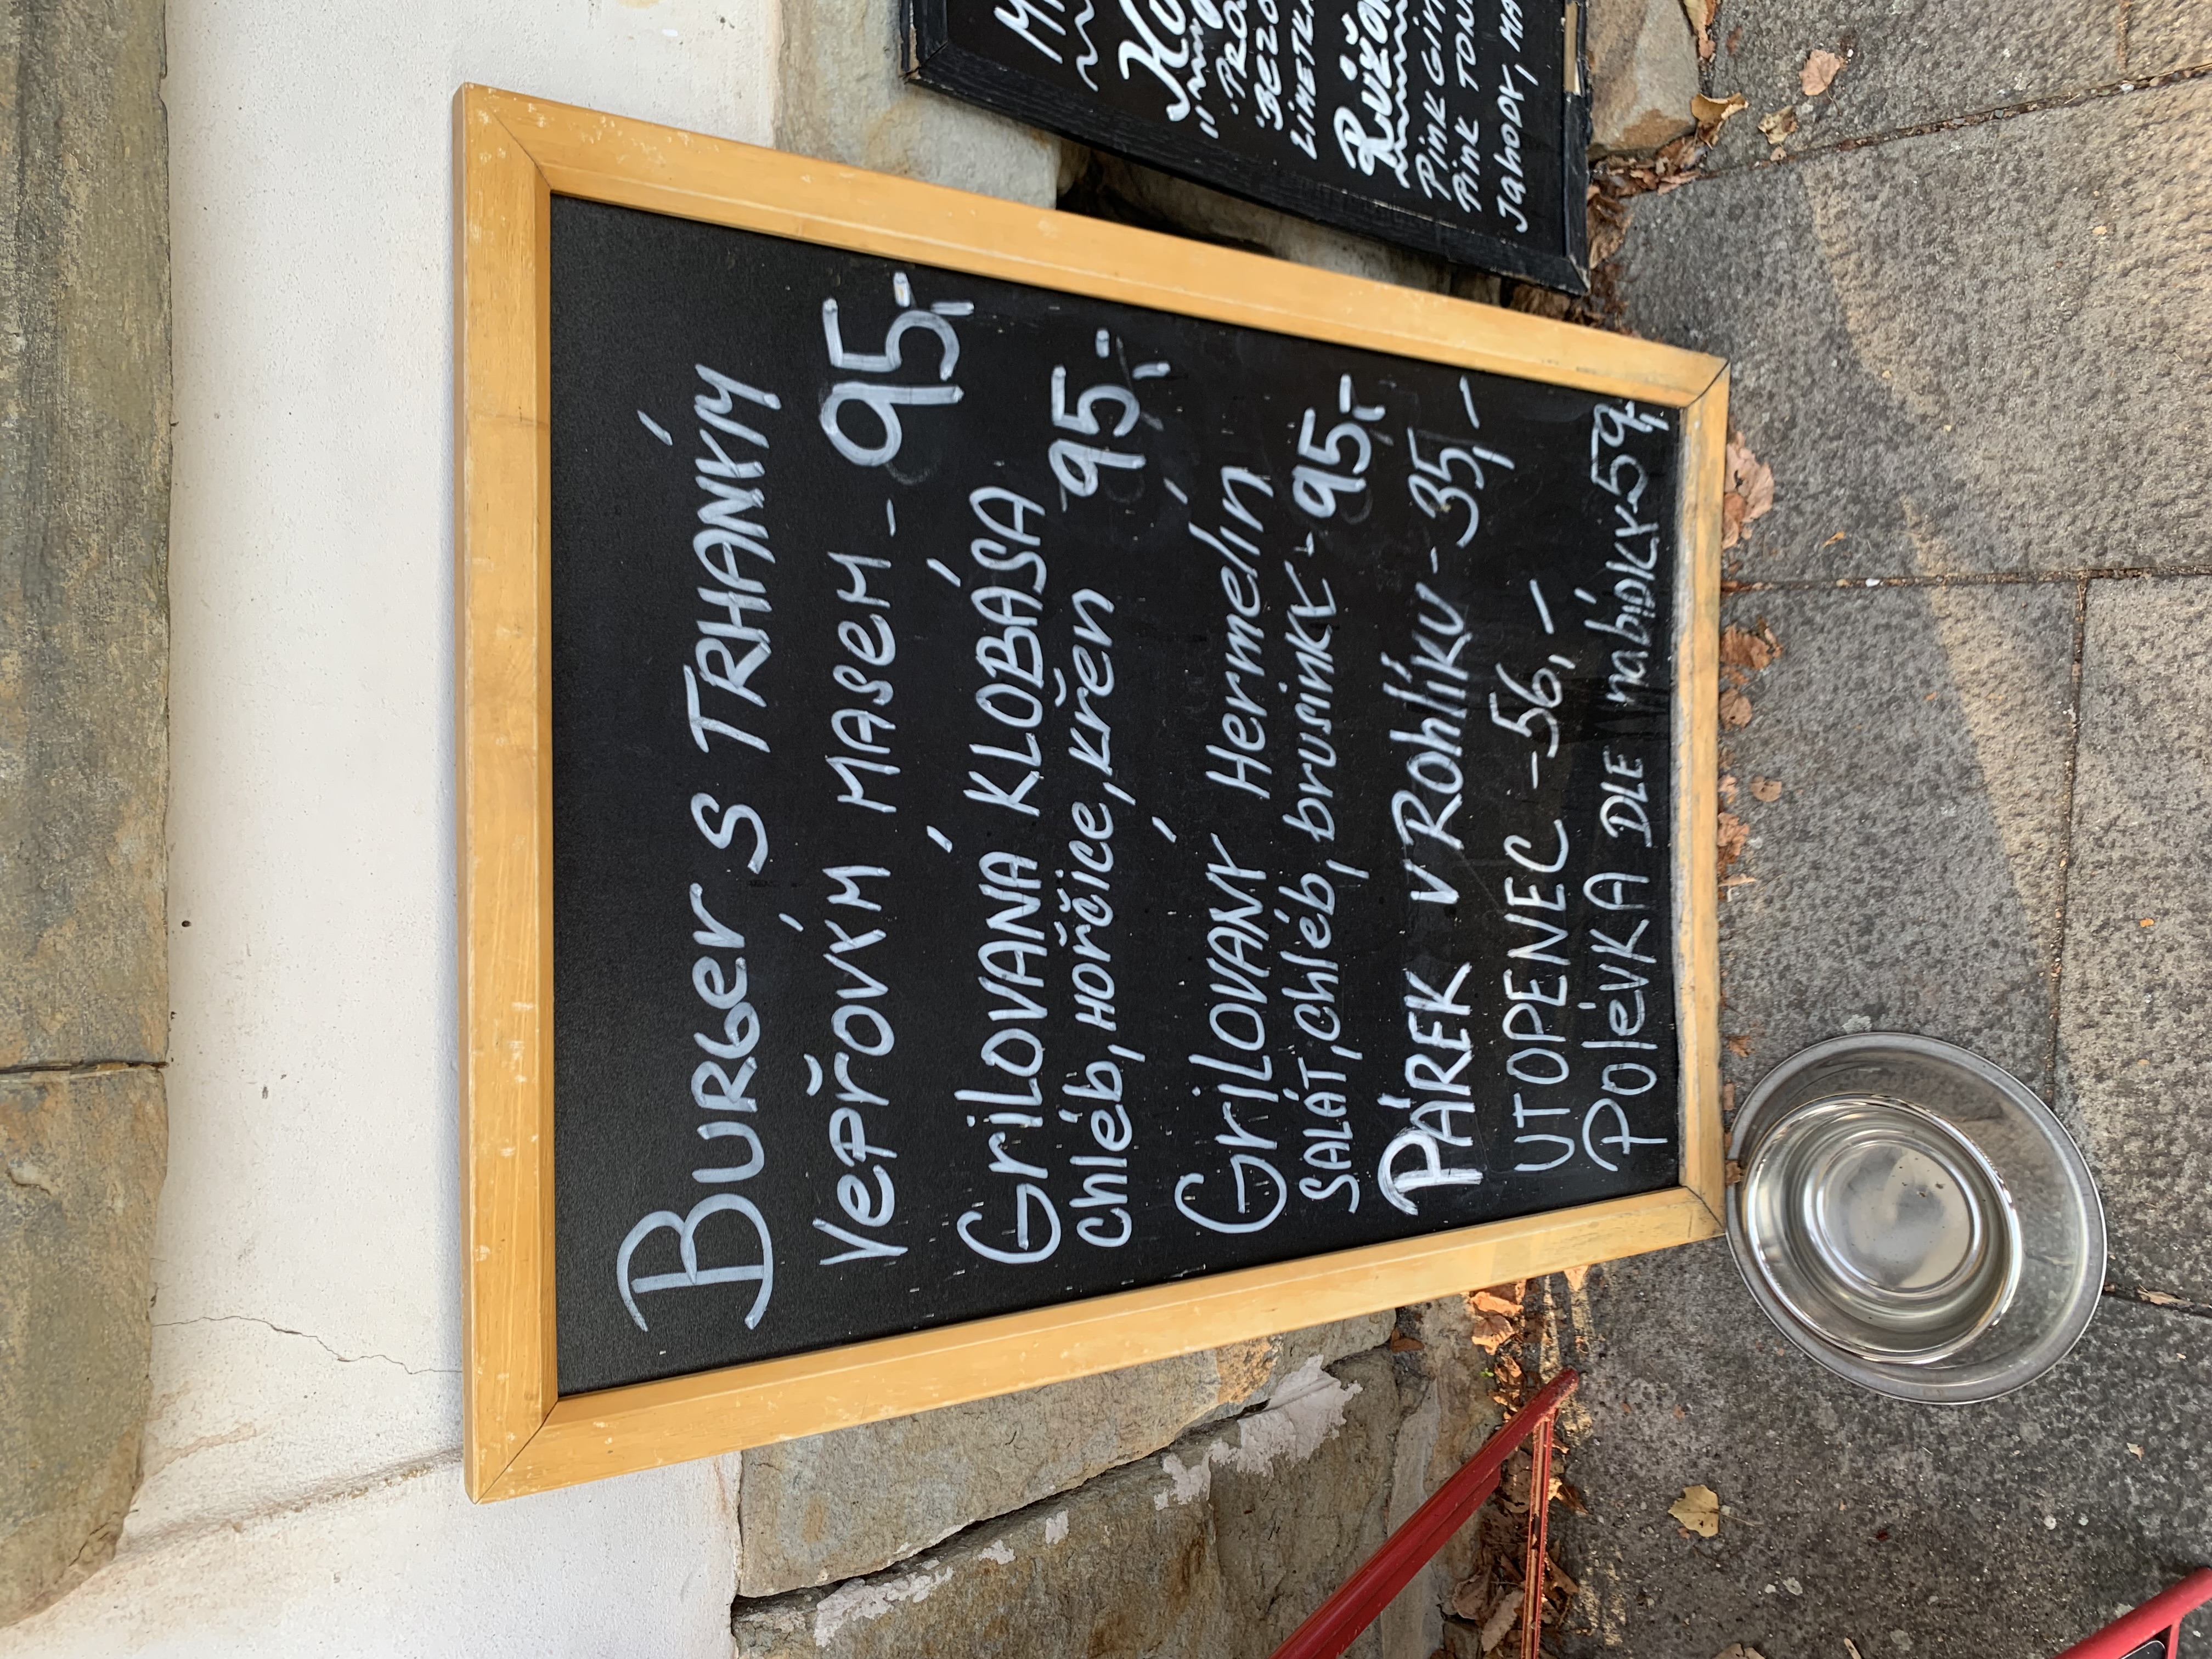 BURGER S TRHANÝM
VEPŘOVÝM MASEM - 95,-
GRILOVANÁ KLOBÁSA
chléb, HOŘČICE, KŘEN 95,-
GRILOVANÝ Hermelín
SALÁT, chléb, brusinky - 95,-
PÁREK V Rohlíku - 35,-
UTOPENEC - 56,-
POLÉVKA DLE nabídky 59,-
LIMETKA
PINK GIN
PINK TONI
JAHODY, MA